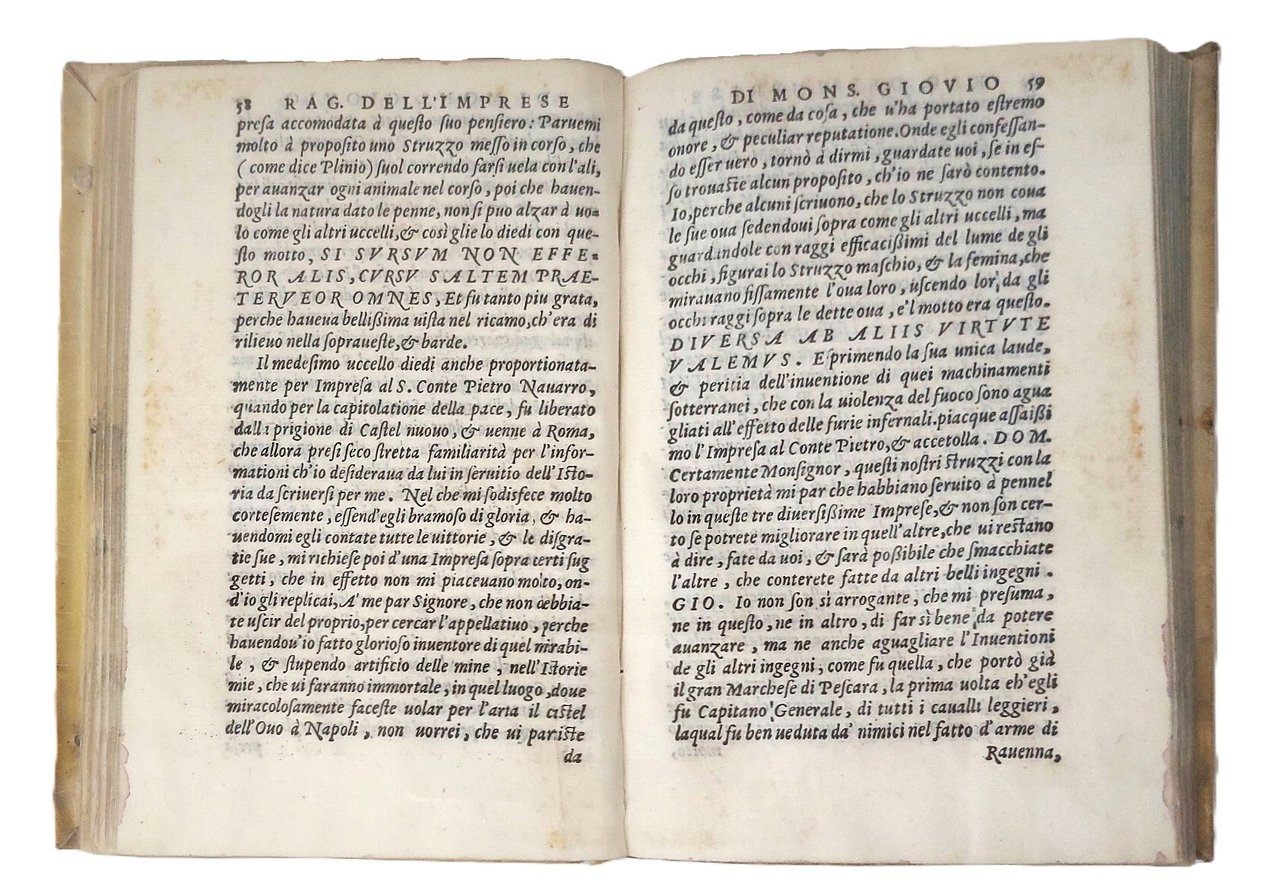 58 RAG. DELL'IMPRESE
presa accomodata à questo suo pensiero: Paruemi
molto à proposito uno Struzzo messo in corso, che
(come dice Plinio) suol correndo farsi uela con l'ali,
per auanzar ogni animale nel corso, poi che hauen-
dogli la natura dato le penne, non si puo alzar à uo-
lo come gli altri uccelli, & così glie lo diedi con que-
sto motto, SI SVRSVM NON EFFE-
ROR ALIS, CVRSV SALTEM PRAE-
TERVEOR OMNES, Et fu tanto piu grata,
perche haueua bellißima uista nel ricamo, ch'era di
rilieuo nella sopraueste, & barde.
Il medesimo uccello diedi anche proportionata-
mente per Impresa al S. Conte Pietro Nauarro,
quando per la capitolatione della pace, fu liberato
dalla prigione di Castel nuouo, & uenne à Roma,
che allora presi seco stretta familiarità per l'infor-
mationi ch'io desideraua da lui in seruitio dell'Isto-
ria da scriuersi per me. Nel che mi sodisfece molto
cortesemente, essend'egli bramoso di gloria, & ha-
uendomi egli contate tutte le uittorie, & le disgra-
tie sue, mi richiese poi d'una Impresa sopra certi sug
getti, che in effetto non mi piaceuano molto, on-
d'io gli replicai, A' me par Signore, che non debbia-
te uscir del proprio, per cercar l'appellatiuo, perche
hauendou'io fatto glorioso inuentore di quel mirabi-
le, & stupendo artificio delle mine, nell'Istorie
mie, che ui faranno immortale, in quel luogo, doue
miracolosamente faceste uolar per l'aria il castel
dell'Ouo à Napoli, non uorrei, che ui pariste
da
DI MONS. GIOVIO 59
da questo, come da cosa, che u'ha portato estremo
onore, & peculiar reputatione. Onde egli confessan-
do esser uero, tornò à dirmi, guardate uoi, se in es-
so trouaste alcun proposito, ch'io ne sarò contento.
Io, perche alcuni scriuono, che lo Struzzo non coua
le sue oua sedendoui sopra come gli altri uccelli, ma
guardandole con raggi efficacißimi del lume de gli
occhi, figurai lo Struzzo maschio, & la femina, che
mirauano fissamente l'oua loro, uscendo lor da gli
occhi raggi sopra le dette oua, e'l motto era questo.
DIVERSA AB ALIIS VIRTVTE
VALEMVS. Esprimendo la sua unica laude,
& peritia dell'inuentione di quei machinamenti
sotterranei, che con la uiolenza del fuoco sono agua
gliati all'effetto delle furie infernali. piacque assaißi
mo l'Impresa al Conte Pietro, & accetolla. DOM.
Certamente Monsignor, questi nostri struzzi con la
loro proprietà mi par che habbiano seruito à pennel
lo in queste tre diuersißime Imprese, & non son cer-
to se potrete migliorare in quell'altre, che ui restano
à dire, fate da uoi, & sarà poßibile che smacchiate
l'altre, che conterete fatte da altri belli ingegni.
GIO. Io non son sì arrogante, che mi presuma,
ne in questo, ne in altro, di far sì bene da potere
auanzare, ma ne anche aguagliare l'Inuentioni
de gli altri ingegni, come fu quella, che portò già
il gran Marchese di Pescara, la prima uolta ch'egli
fu Capitano Generale, di tutti i caualli leggieri,
laqual fu ben ueduta da' nimici nel fatto d'arme di
Rauenna,